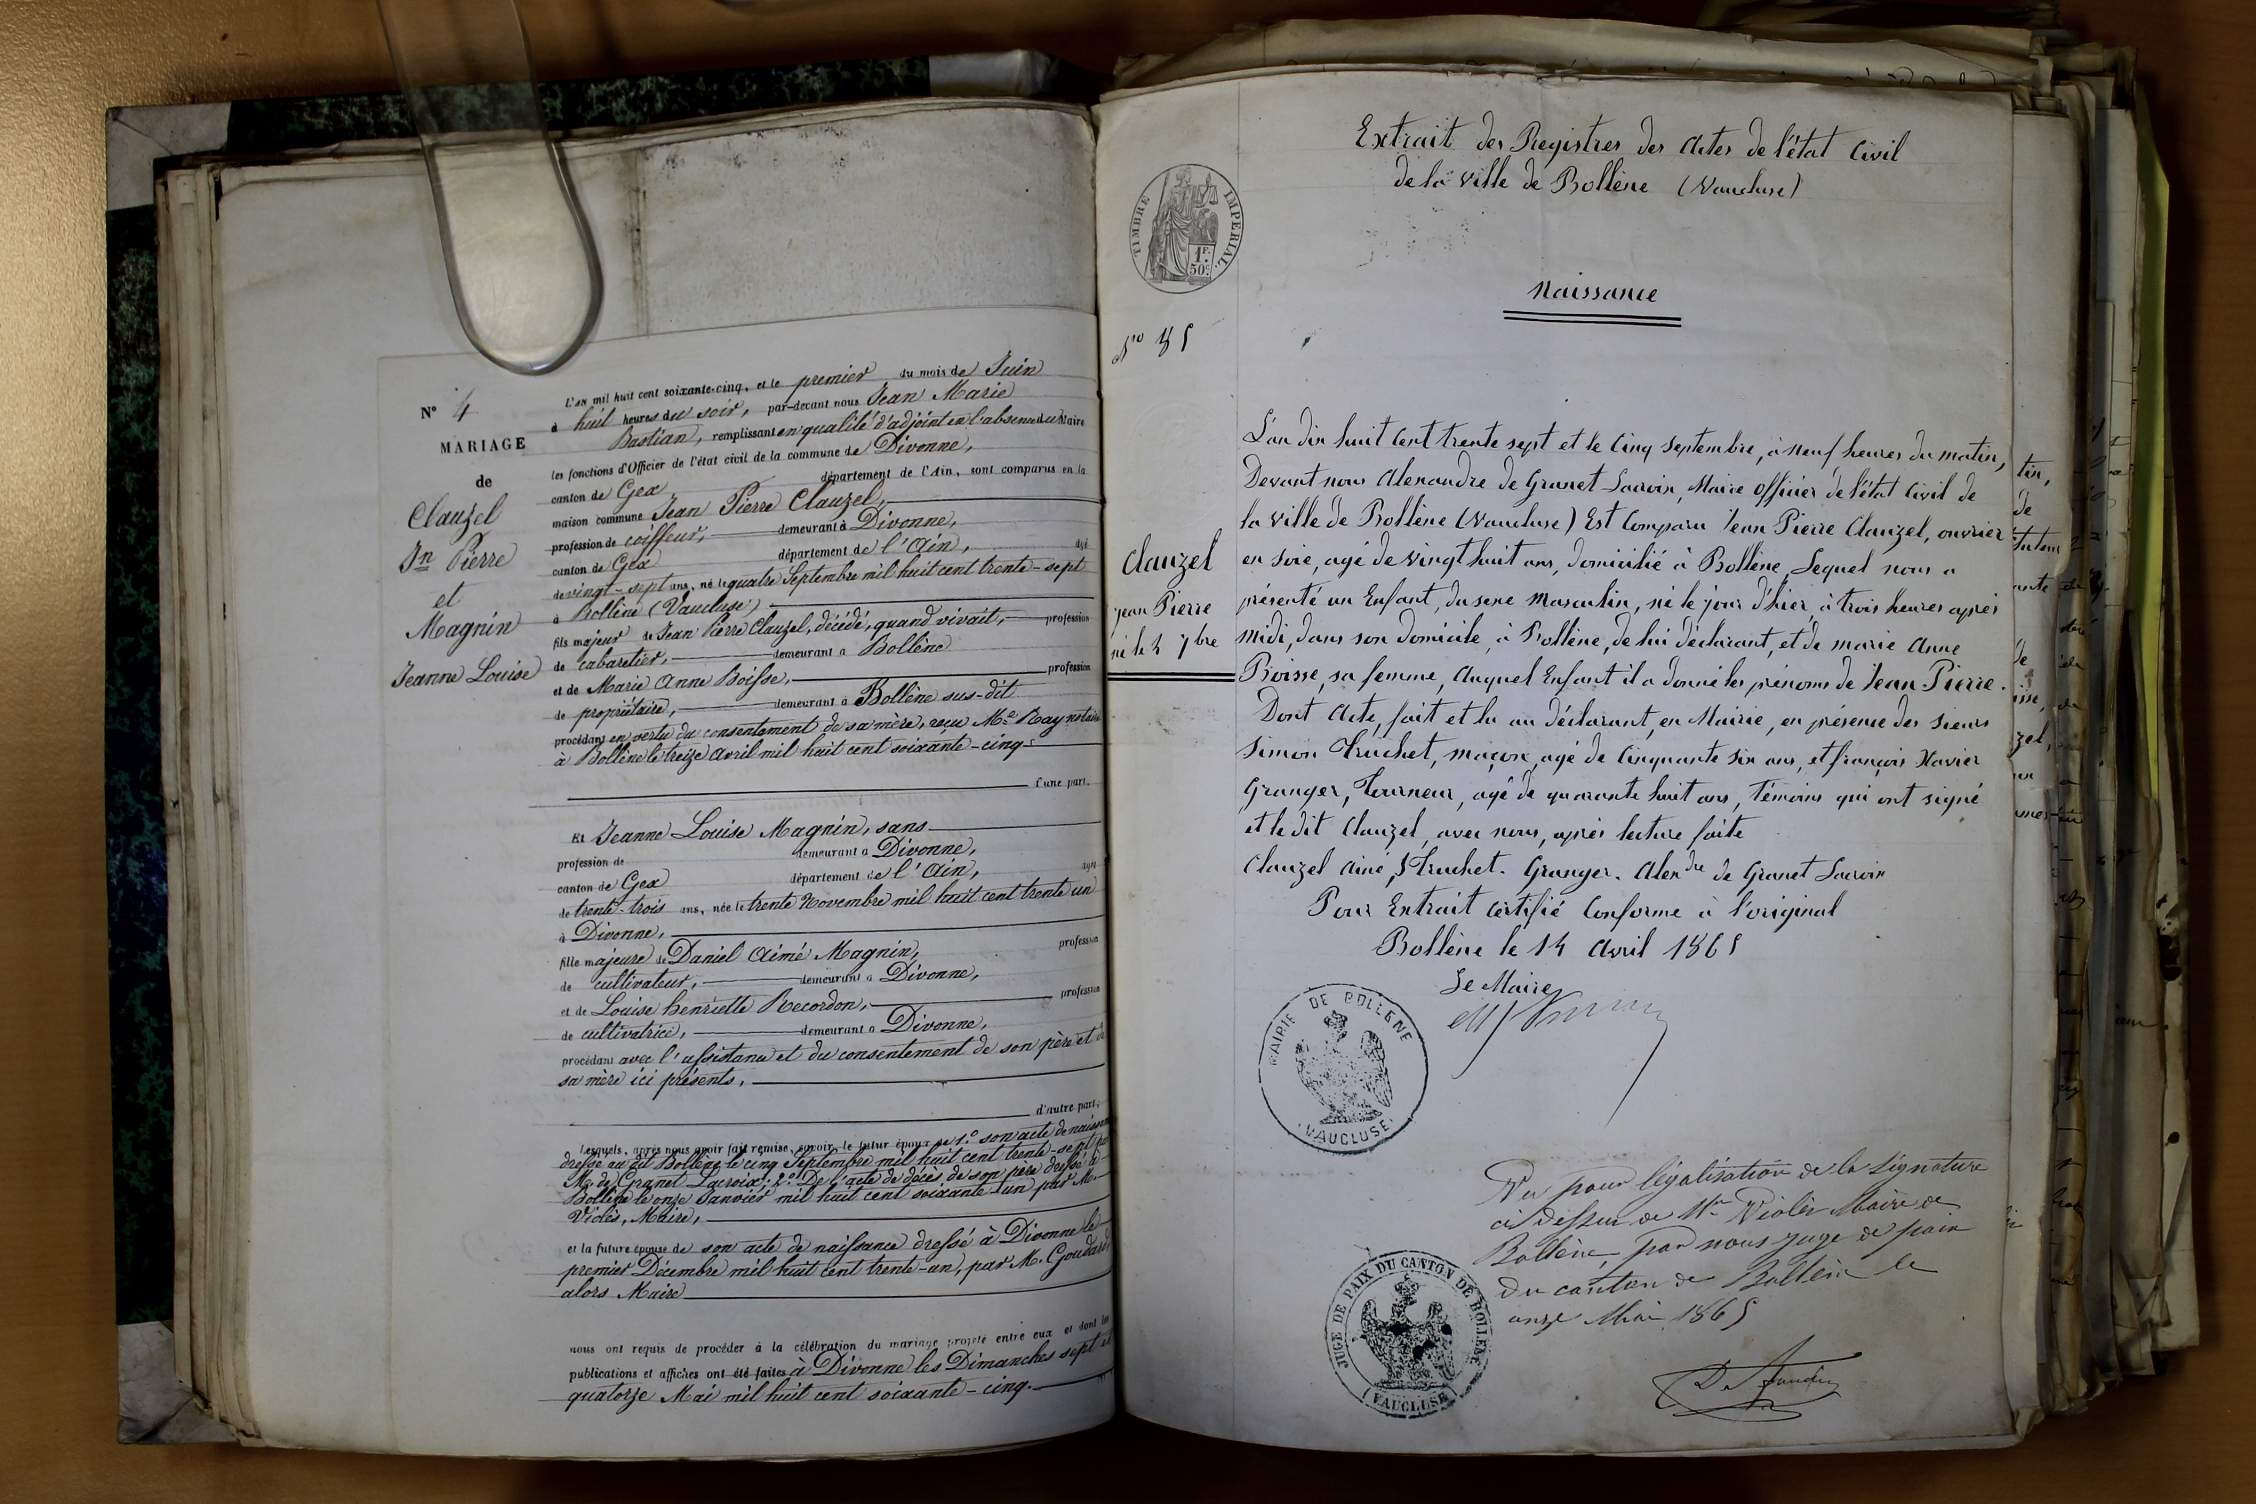 N° 4
MARIAGE
de
Clauzel
Jn Pierre
et
Magnin
Jeanne Louise
L'an mil huit cent soixante-cinq, et le premier du mois de Juin
à huit heures du soir, par-devant nous Jean Marie
Bastian, remplissant en qualité d'adjoint en l'absence du Maire
les fonctions d'Officier de l'état civil de la commune de Divonne,
canton de Gex département de l'Ain, sont comparus en la
maison commune Jean Pierre Clauzel,
profession de coiffeur, demeurant à Divonne,
canton de Gex département de l'Ain, âgé
de vingt-sept ans, né le quatre Septembre mil huit cent trente-sept
à Bollène (Vaucluse)
fils majeur de Jean Pierre Clauzel, décédé, quand vivait, profession
de cabaretier, demeurant à Bollène
et de Marie Anne Boisse, profession
de propriétaire, demeurant à Bollène sus-dit
procédant en vertu du consentement de sa mère, reçu Me Ray notaire
à Bollène le treize Avril mil huit cent soixante-cinq.
d'une part.
Et Jeanne Louise Magnin, sans
profession de demeurant à Divonne,
canton de Gex département de l'Ain, âgée
de trente-trois ans, née le trente Novembre mil huit cent trente un
à Divonne,
fille majeure de Daniel Aimé Magnin, profession
de cultivateur, demeurant à Divonne,
et de Louise henriette Recordon, profession
de cultivatrice, demeurant à Divonne,
procédant avec l'assistance et du consentement de son père et de
sa mère ici présents,
d'autre part,
Lesquels, après nous avoir fait remise, savoir, le futur époux de 1.° son acte de naissance
dressé au dit Bollène le cinq Septembre mil huit cent trente-sept par
Mr. de Granet Lacroix; 2.° De l'acte de décès de son père dressé à
Bollène le onze Janvier mil huit cent soixante-un par M.
Violès, Maire,
et la future épouse de son acte de naissance dressé à Divonne le
premier Décembre mil huit cent trente-un, par M. Goudard
alors Maire
nous ont requis de procéder à la célébration du mariage projeté entre eux et dont les
publications et affiches ont été faites à Divonne les Dimanches sept et
quatorze Mai mil huit cent soixante-cinq.
Extrait des Registres des Actes de l'état Civil
de la ville de Bollène (Vaucluse)
TIMBRE IMPERIAL.
1F. 50C.
Naissance
N° 85
Clauzel
jean Pierre
né le 4 7bre
L'an dix huit cent trente sept et le cinq septembre, à neuf heures du matin,
Devant nous Alexandre de Granet Lacroix, Maire officier de l'état Civil de
la ville de Bollène (Vaucluse) Est Comparu Jean Pierre Clauzel, ouvrier
en soie, agé de vingt huit ans, domicilié à Bollène, Lequel nous a
présenté un Enfant, du sexe Masculin, né le jour d'hier, à trois heures après
midi, dans son domicile, à Bollène, de lui déclarant, et de marie Anne
Boisse, sa femme, Auquel Enfant il a donné les prénoms de Jean Pierre.
Dont Acte, fait et lu au déclarant, en Mairie, en présence des sieurs
Simon Truchet, maçon, agé de Cinquante six ans, et françois Xavier
Granger, Tourneur, agé de quarante huit ans, témoins qui ont signé
et le dit Clauzel, avec nous, après lecture faite
Clauzel ainé, S Truchet. Granger. Alexdre de Granet Lacroix
Pour Extrait Certifié Conforme à l'original
Bollène le 14 Avril 1865
Le Maire
MAIRIE DE BOLLÈNE
(VAUCLUSE)
Vu pour légalisation de la signature
ci dessus de Mr Violès Maire de
Bollène, par nous juge de paix
du canton de Bollène le
onze Mai 1865
JUGE DE PAIX DU CANTON DE BOLLÈNE
(VAUCLUSE)